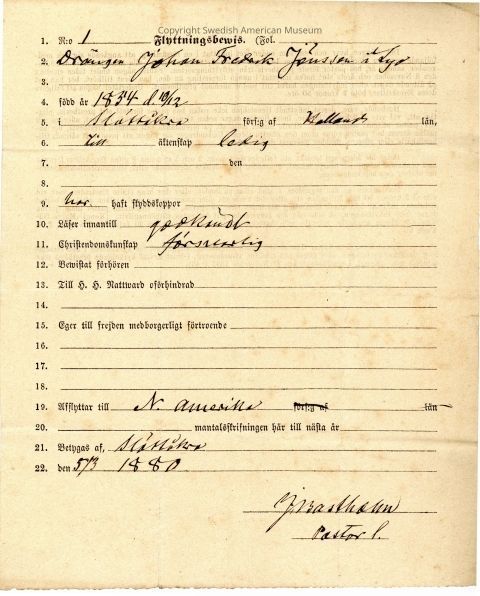 Copyright Swedish American Museum
1. N:o 1 Flyttningsbewis. (Fol.
2. Drängen Johan Fredrik Jönsson i Lyo
3.
4. född år 1854 d. 19/12
5. i Slättåkra förs:g af Hallands län,
6. Till äktenskap ledig
7. den
8.
9. har haft skyddskoppor
10. Läser innantill godkändt
11. Christendomskunskap försvarlig
12. Bewistat förhören
13. Till H. H. Nattward oförhindrad
14.
15. Eger till frejden medborgerligt förtroende
16.
17.
18.
19. Afflyttar till N. Amerika förs:g af län
20. mantalsskrifningen här till nästa år
21. Betygas af, Slättåkra
22. den 5/3 1880
Pastor